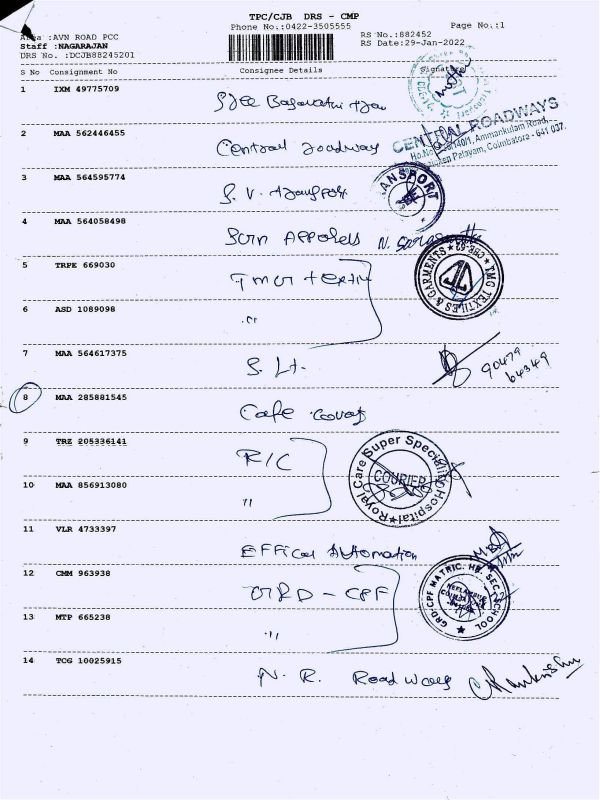 TPC/CJB DRS - CMP
Phone No.:0422-3505555 Page No.:1
Area :AVN ROAD PCC RS No.:882452
Staff :NAGARAJAN RS Date:29-Jan-2022
DRS No. :DCJB88245201
S No Consignment No Consignee Details Signature
1 IXM 49775709
2 MAA 562446455 Central roadways
CENTRAL ROADWAYS
Ammankulam Road,
Palayam, Coimbatore - 641 037.
3 MAA 564595774 S. V. transport
TRANSPORT
4 MAA 564058498
5 TRPE 669030
TMG TEXTILES & GARMENTS CBE-62
6 ASD 1089098 "
7 MAA 564617375 S. Lt.
90479
64349
8 MAA 285881545 Cafe
9 TRZ 205336141 R/C
Royal Care Super Speciality Hospital
COURIER
10 MAA 856913080 "
11 VLR 4733397 Automation
12 CMM 963938 GRD - CPF
GRD-CPF MATRIC. HR. SEC. SCHOOL
13 MTP 665238 "
14 TCG 10025915 N. R. Roadways